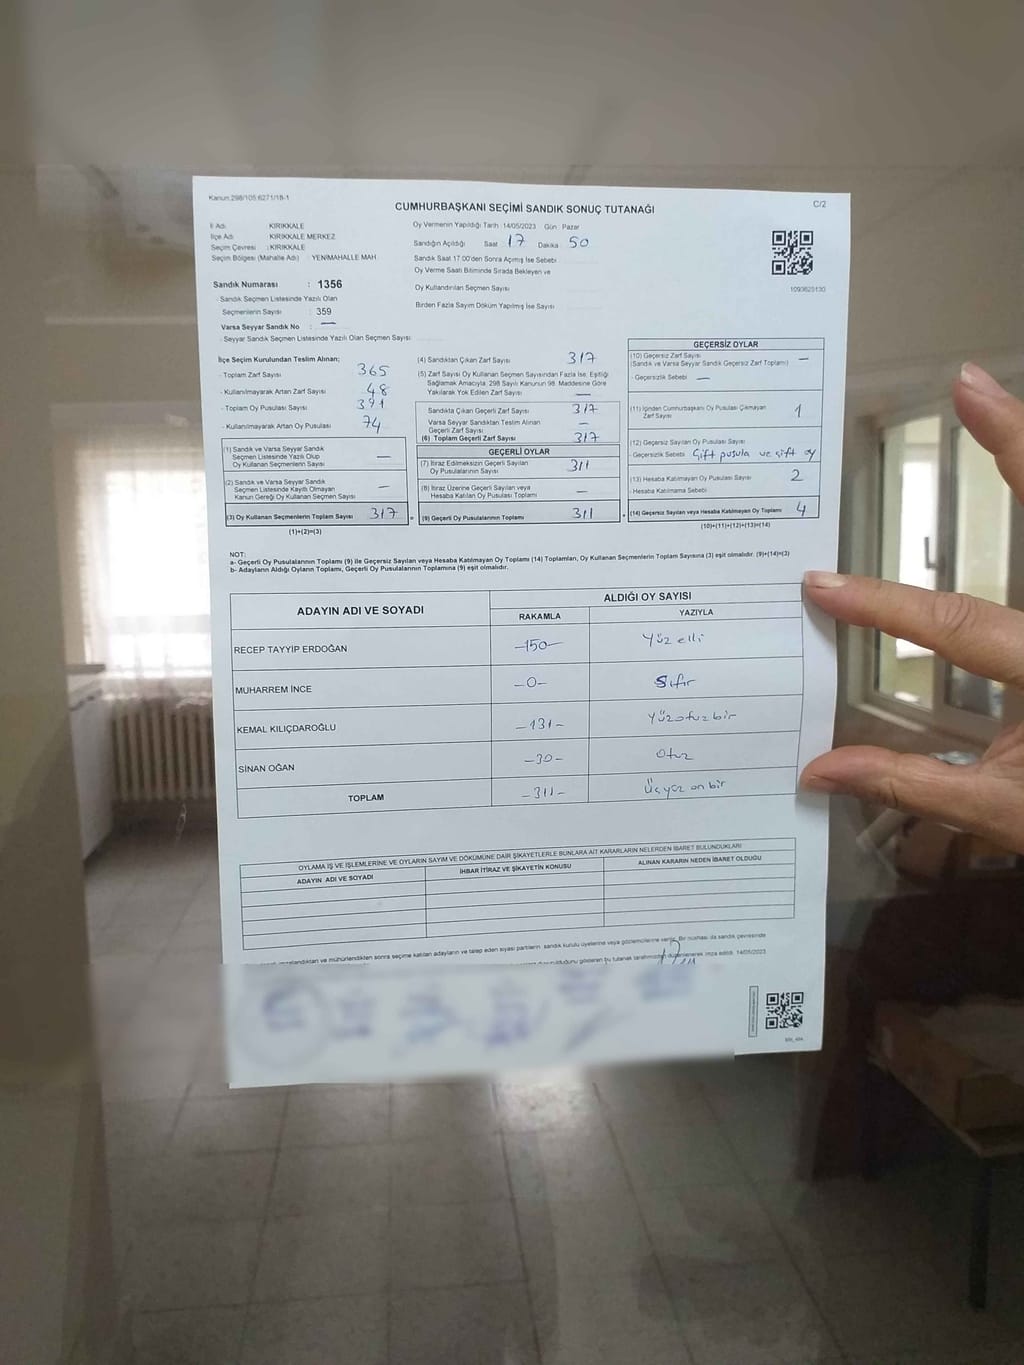 Kanun:298/105;6271/18-1
C/2
CUMHURBAŞKANI SEÇİMİ SANDIK SONUÇ TUTANAĞI
İl Adı KIRIKKALE
İlçe Adı KIRIKKALE MERKEZ
Seçim Çevresi : KIRIKKALE
Seçim Bölgesi (Mahalle Adı) : YENİMAHALLE MAH.
Sandık Numarası : 1356
- Sandık Seçmen Listesinde Yazılı Olan
Seçmenlerin Sayısı : 359
Varsa Seyyar Sandık No : —
- Seyyar Sandık Seçmen Listesinde Yazılı Olan Seçmen Sayısı
Oy Vermenin Yapıldığı Tarih :14/05/2023 Gün Pazar
Sandığın Açıldığı Saat 17 Dakika 50
Sandık Saat 17.00'den Sonra Açılmış İse Sebebi
Oy Verme Saati Bitiminde Sırada Bekleyen ve
Oy Kullandırılan Seçmen Sayısı
Birden Fazla Sayım Döküm Yapılmış İse Sayısı
1093625130
İlçe Seçim Kurulundan Teslim Alınan;
- Toplam Zarf Sayısı 365
- Kullanılmayarak Artan Zarf Sayısı 48
- Toplam Oy Pusulası Sayısı 391
- Kullanılmayarak Artan Oy Pusulası 74
(1) Sandık ve Varsa Seyyar Sandık
Seçmen Listesinde Yazılı Olup
Oy Kullanan Seçmenlerin Sayısı —
(2) Sandık ve Varsa Seyyar Sandık
Seçmen Listesinde Kayıtlı Olmayan
Kanun Gereği Oy Kullanan Seçmen Sayısı —
(3) Oy Kullanan Seçmenlerin Toplam Sayısı 317
(1)+(2)=(3)
(4) Sandıktan Çıkan Zarf Sayısı 317
(5) Zarf Sayısı Oy Kullanan Seçmen Sayısından Fazla İse, Eşitliği
Sağlamak Amacıyla, 298 Sayılı Kanunun 98. Maddesine Göre
Yakılarak Yok Edilen Zarf Sayısı —
Sandıkta Çıkan Geçerli Zarf Sayısı 317
Varsa Seyyar Sandıktan Teslim Alınan
Geçerli Zarf Sayısı —
(6) Toplam Geçerli Zarf Sayısı 317
GEÇERLİ OYLAR
(7) İtiraz Edilmeksizin Geçerli Sayılan
Oy Pusulalarının Sayısı 311
(8) İtiraz Üzerine Geçerli Sayılan veya
Hesaba Katılan Oy Pusulası Toplamı —
(9) Geçerli Oy Pusulalarının Toplamı 311
GEÇERSİZ OYLAR
(10) Geçersiz Zarf Sayısı
(Sandık ve Varsa Seyyar Sandık Geçersiz Zarf Toplamı) —
- Geçersizlik Sebebi —
(11) İçinden Cumhurbaşkanı Oy Pusulası Çıkmayan
Zarf Sayısı 1
(12) Geçersiz Sayılan Oy Pusulası Sayısı
- Geçersizlik Sebebi Çift pusula ve çift oy
(13) Hesaba Katılmayan Oy Pusulası Sayısı 2
- Hesaba Katılmama Sebebi
(14) Geçersiz Sayılan veya Hesaba Katılmayan Oy Toplamı 4
(10)+(11)+(12)+(13)=(14)
NOT:
a- Geçerli Oy Pusulalarının Toplamı (9) ile Geçersiz Sayılan veya Hesaba Katılmayan Oy Toplamı (14) Toplamları, Oy Kullanan Seçmenlerin Toplam Sayısına (3) eşit olmalıdır. (9)+(14)=(3)
b- Adayların Aldığı Oyların Toplamı, Geçerli Oy Pusulalarının Toplamına (9) eşit olmalıdır.
ADAYIN ADI VE SOYADI ALDIĞI OY SAYISI
RAKAMLA YAZIYLA
RECEP TAYYİP ERDOĞAN -150- Yüz elli
MUHARREM İNCE -0- Sıfır
KEMAL KILIÇDAROĞLU -131- Yüzotuzbir
SİNAN OĞAN -30- Otuz
TOPLAM -311- Üçyüz on bir
OYLAMA İŞ VE İŞLEMLERİNE VE OYLARIN SAYIM VE DÖKÜMÜNE DAİR ŞİKAYETLERLE BUNLARA AİT KARARLARIN NELERDEN İBARET BULUNDUKLARI
ADAYIN ADI VE SOYADI İHBAR İTİRAZ VE ŞİKAYETİN KONUSU ALINAN KARARIN NEDEN İBARET OLDUĞU
imzalandıktan ve mühürlendikten sonra seçime katılan adayların ve talep eden siyasi partilerin sandık kurulu üyelerine veya gözlemcilerine verilir. Bir nüshası da sandık çevresinde
olduğunu gösteren bu tutanak tarafımızdan düzenlenerek imza edildi. 14/05/2023